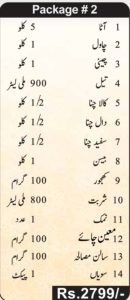 Package # 2
1 آٹا 5 کلو
2 چاول 1 کلو
3 چینی 1 کلو
4 تیل 900 ملی لیٹر
5 کالا چنا 1/2 کلو
6 دال چنا 1/2 کلو
7 سفید چنا 1/2 کلو
8 بیسن 1 کلو
9 کھجور 100 گرام
10 شربت 800 ملی لیٹر
11 نمک 1 عدد
12 معین چائے 100 گرام
13 سالن مصالحہ 100 گرام
14 سویاں 1 پیکٹ
Rs.2799/-